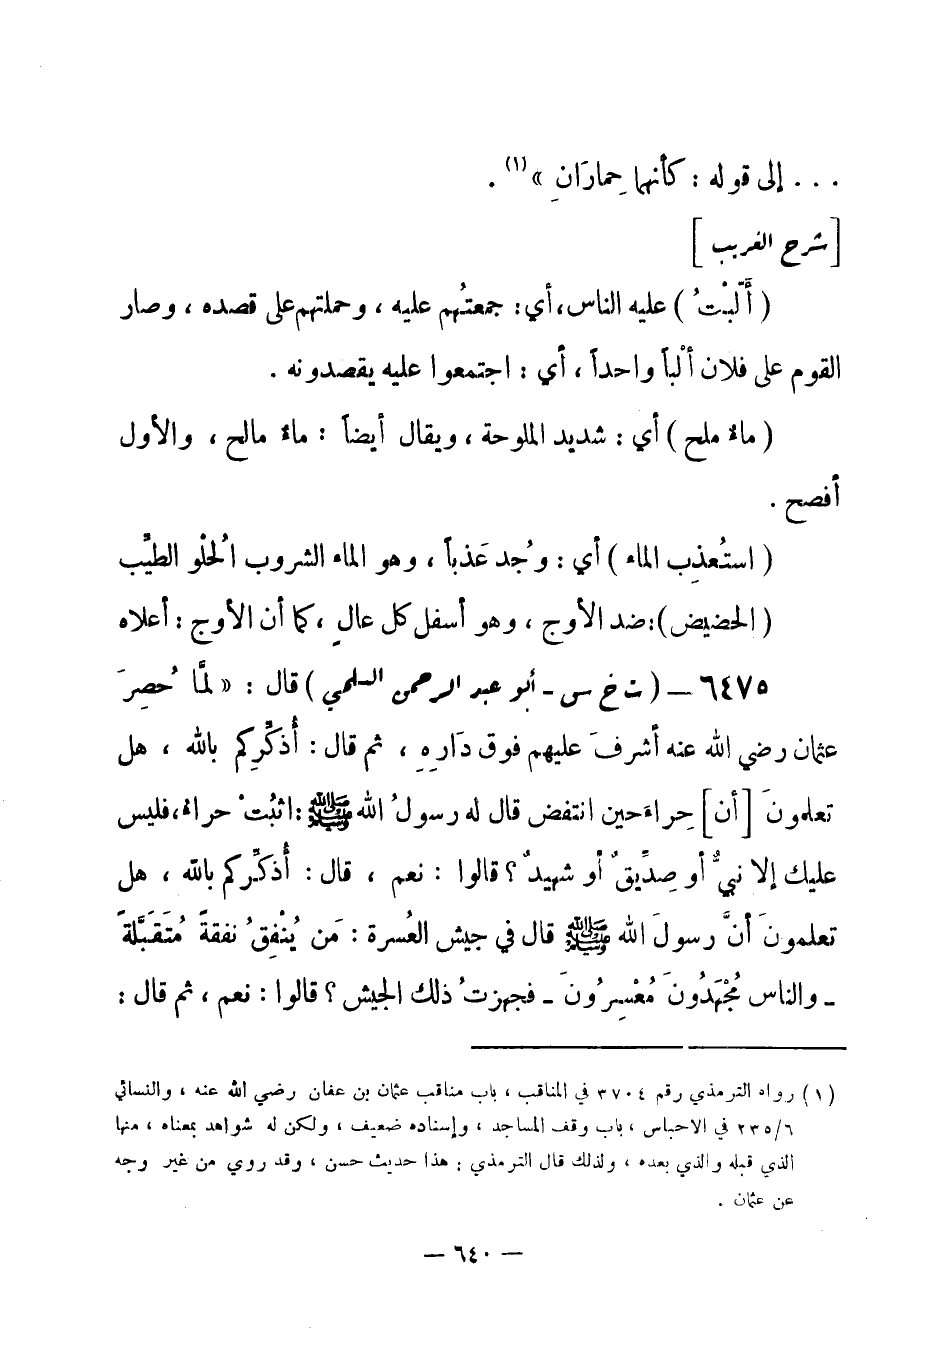 ... إلى قوله : كأنهما حِمارَانِ »(١) .
[ شرح الغريب ]
( أَلَّبْتُ ) عليه الناس، أي: جمعتُهم عليه ، وحملتهم على قصده ، وصار
القوم على فلان ألْباً واحداً ، أي : اجتمعوا عليه يقصدونه .
( ماءٌ ملح ) أي : شديد الملوحة ، ويقال أيضاً : ماءٌ مالح ، والأول
أفصح .
( استُعذِب الماء ) أي : وُجد عَذباً ، وهو الماء الشروب الحُلْو الطيِّب
( الحضيض ): ضد الأوج ، وهو أسفل كل عالٍ ، كما أن الأوج : أعلاه
٦٤٧٥ – ( ت خ س - أبو عبد الرحمن السلمي ) قال : « لمَّا حُصِرَ
عثمان رضي الله عنه أشرفَ عليهم فوق دَارِهِ ، ثم قال : أُذكِّرِكم بالله ، هل
تعلمونَ [أن] حِراءَ حين انتفض قال له رسولُ الله ﷺ : اثبُتْ حراءُ، فليس
عليك إلا نبيٌّ أو صِدِّيقٌ أو شهيدٌ ؟ قالوا : نعم ، قال : أُذكِّركم بالله ، هل
تعلمونَ أنَّ رسولَ الله ﷺ قال في جيش العُسرة : مَن يُنْفِقُ نفقةً مُتَقَبَّلةً
ـ والناس مُجْهَدُونَ مُعْسِرُونَ ـ فجهزتُ ذلك الجيش ؟ قالوا : نعم ، ثم قال :
(١) رواه الترمذي رقم ٣٧٠٤ في المناقب ، باب مناقب عثمان بن عفان رضي الله عنه ، والنسائي
٢٣٥/٦ في الاحباس ، باب وقف المساجد ، وإسناده ضعيف ، ولكن له شواهد بمعناه ، منها
الذي قبله والذي بعده ، ولذلك قال الترمذي : هذا حديث حسن ، وقد روي من غير وجه
عن عثمان .
– ٦٤٠ –